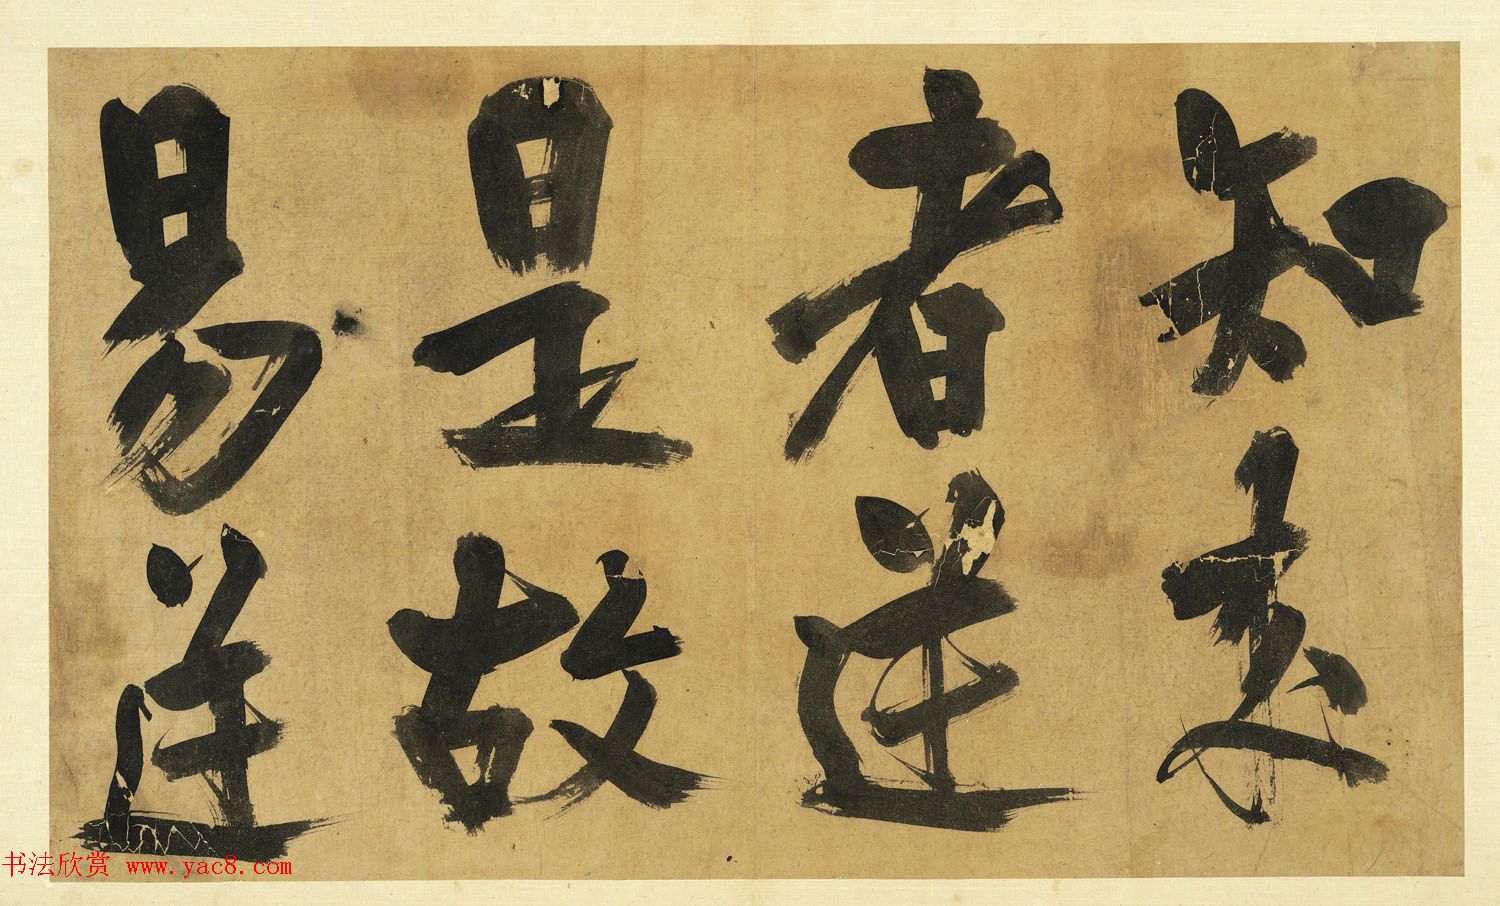 知来
者逆
是故
易逆
书法欣赏 www.yac8.com